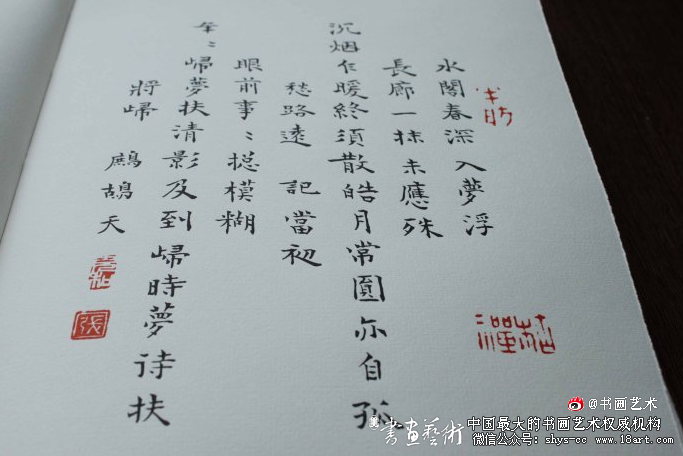 水閣春深入夢浮
長廊一抹未應殊
沉烟乍暖終須散皓月常圓亦自孤
愁路遠 記當初
眼前事〻摠模糊
年〻歸夢扶清影及到歸時夢待扶
將歸 鷓鴣天
張
書画藝術
@书画艺术
中国最大的书画艺术权威机构
微信公众号：shys-cc www.18art.com